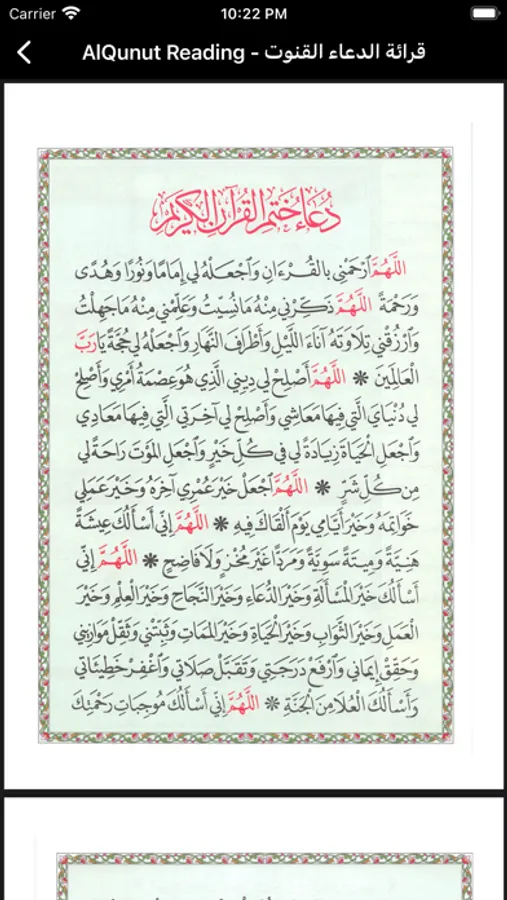 Carrier 10:22 PM
AlQunut Reading - قرائة الدعاء القنوت
دُعَاءُ خَتْمِ القُرْآنِ الكَرِيمِ
اللَّهُمَّ ٱرْحَمْنِي بالقُرْءَانِ وَٱجْعَلْهُ لِي إِمَامًا وَنُورًا وَهُدًى
وَرَحْمَةً اللَّهُمَّ ذَكِّرْنِي مِنْهُ مَانُسِّيتُ وَعَلِّمْنِي مِنْهُ مَاجَهِلْتُ
وَٱرْزُقْنِي تِلَاوَتَهُ آنَاءَ اللَّيْلِ وَأَطْرَافَ النَّهَارِ وَٱجْعَلْهُ لِي حُجَّةً يَارَبَّ
العَالَمِينَ ❋ اللَّهُمَّ أَصْلِحْ لِي دِينِي الَّذِي هُوَ عِصْمَةُ أَمْرِي وَأَصْلِحْ
لِي دُنْيَايَ الَّتِي فِيهَا مَعَاشِي وَأَصْلِحْ لِي آخِرَتِي الَّتِي فِيهَا مَعَادِي
وَٱجْعَلِ الحَيَاةَ زِيَادَةً لِي فِي كُلِّ خَيْرٍ وَٱجْعَلِ المَوْتَ رَاحَةً لِي
مِن كُلِّ شَرٍّ ❋ اللَّهُمَّ ٱجْعَلْ خَيْرَ عُمْرِي آخِرَهُ وَخَيْرَ عَمَلِي
خَوَاتِمَهُ وَخَيْرَ أَيَّامِي يَوْمَ أَلْقَاكَ فِيهِ ❋ اللَّهُمَّ إِنِّي أَسْأَلُكَ عِيشَةً
هَنِيَّةً وَمِيتَةً سَوِيَّةً وَمَرَدًّا غَيْرَ مُخْزٍ وَلَا فَاضِحٍ ❋ اللَّهُمَّ إِنِّي
أَسْأَلُكَ خَيْرَ المَسْأَلَةِ وَخَيْرَ الدُّعَاءِ وَخَيْرَ النَّجَاحِ وَخَيْرَ العِلْمِ وَخَيْرَ
العَمَلِ وَخَيْرَ الثَّوَابِ وَخَيْرَ الحَيَاةِ وَخَيْرَ المَمَاتِ وَثَبِّتْنِي وَثَقِّلْ مَوَازِينِي
وَحَقِّقْ إِيمَانِي وَٱرْفَعْ دَرَجَتِي وَتَقَبَّلْ صَلَاتِي وَٱغْفِرْ خَطِيئَاتِي
وَأَسْأَلُكَ العُلَا مِنَ الجَنَّةِ ❋ اللَّهُمَّ إِنِّي أَسْأَلُكَ مُوجِبَاتِ رَحْمَتِكَ